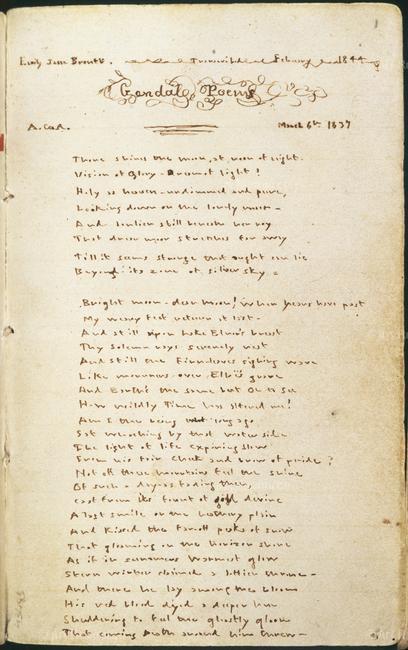 Emily Jane Brontë. Transcribed Febuary 1844
Gondal Poems
A.G.A. March 6th 1837
There shines the moon, at noon of night.
Vision of Glory - Dream of light!
Holy as heaven - undimmed and pure,
Looking down on the lonely moor -
And lonlier still beneath her ray
That drear moor stretches far away
Till it seems strange that aught can lie
Beyond its zone of silver sky -
Bright moon - dear moon! when years have past
My weary feet return at last -
And still upon Lake Elnor's breast
Thy solemn rays serenely rest
And still the Fernleaves sighing wave
Like mourners over Elbë's grave
And Earth's the same but Oh to see
How wildly Time has altered me!
Am I the being who long ago
Sat watching by that water side
The light of life expiring slow
From his fair cheek and brow of pride?
Not oft these mountains feel the shine
Of such a day - as fading then,
Cast from its fount of gold divine
A last smile on the heathery plain
And kissed the far-off peaks of snow
That gleaming on the horizon shone
As if in summer's warmest glow
Stern winter claimed a loftier throne -
And there he lay among the bloom
His red blood dyed a deeper hue
Shuddering to feel the ghastly gloom
That coming Death around him threw -